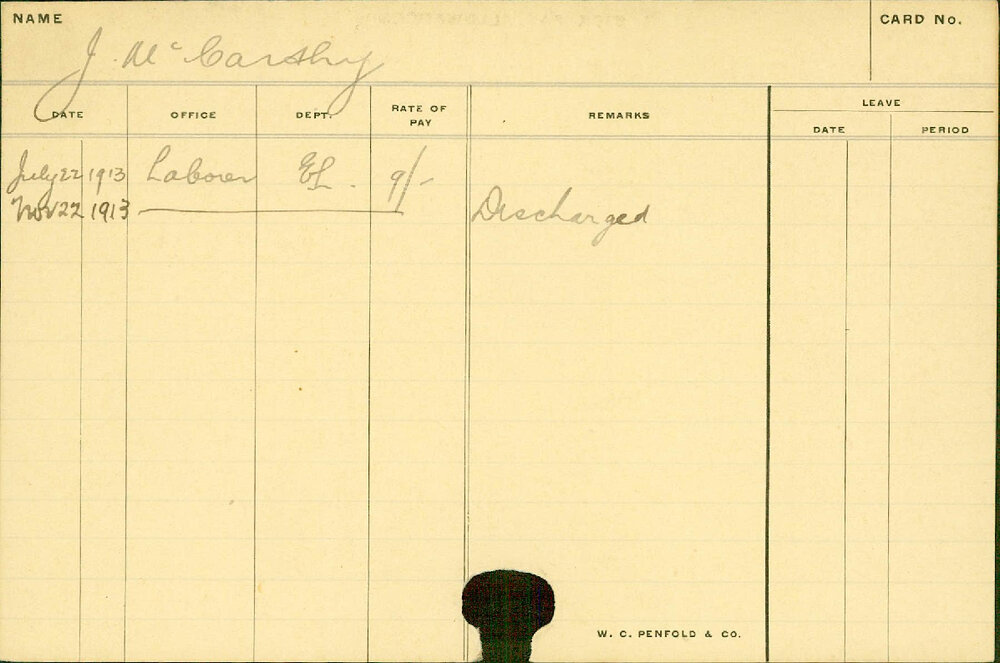 NAME CARD No.
J. McCarthy
DATE OFFICE DEPT. RATE OF PAY REMARKS LEAVE
DATE PERIOD
July 22 1913 Laborer EL. 9/-
Nov 22 1913 Discharged
W. C. PENFOLD & CO.